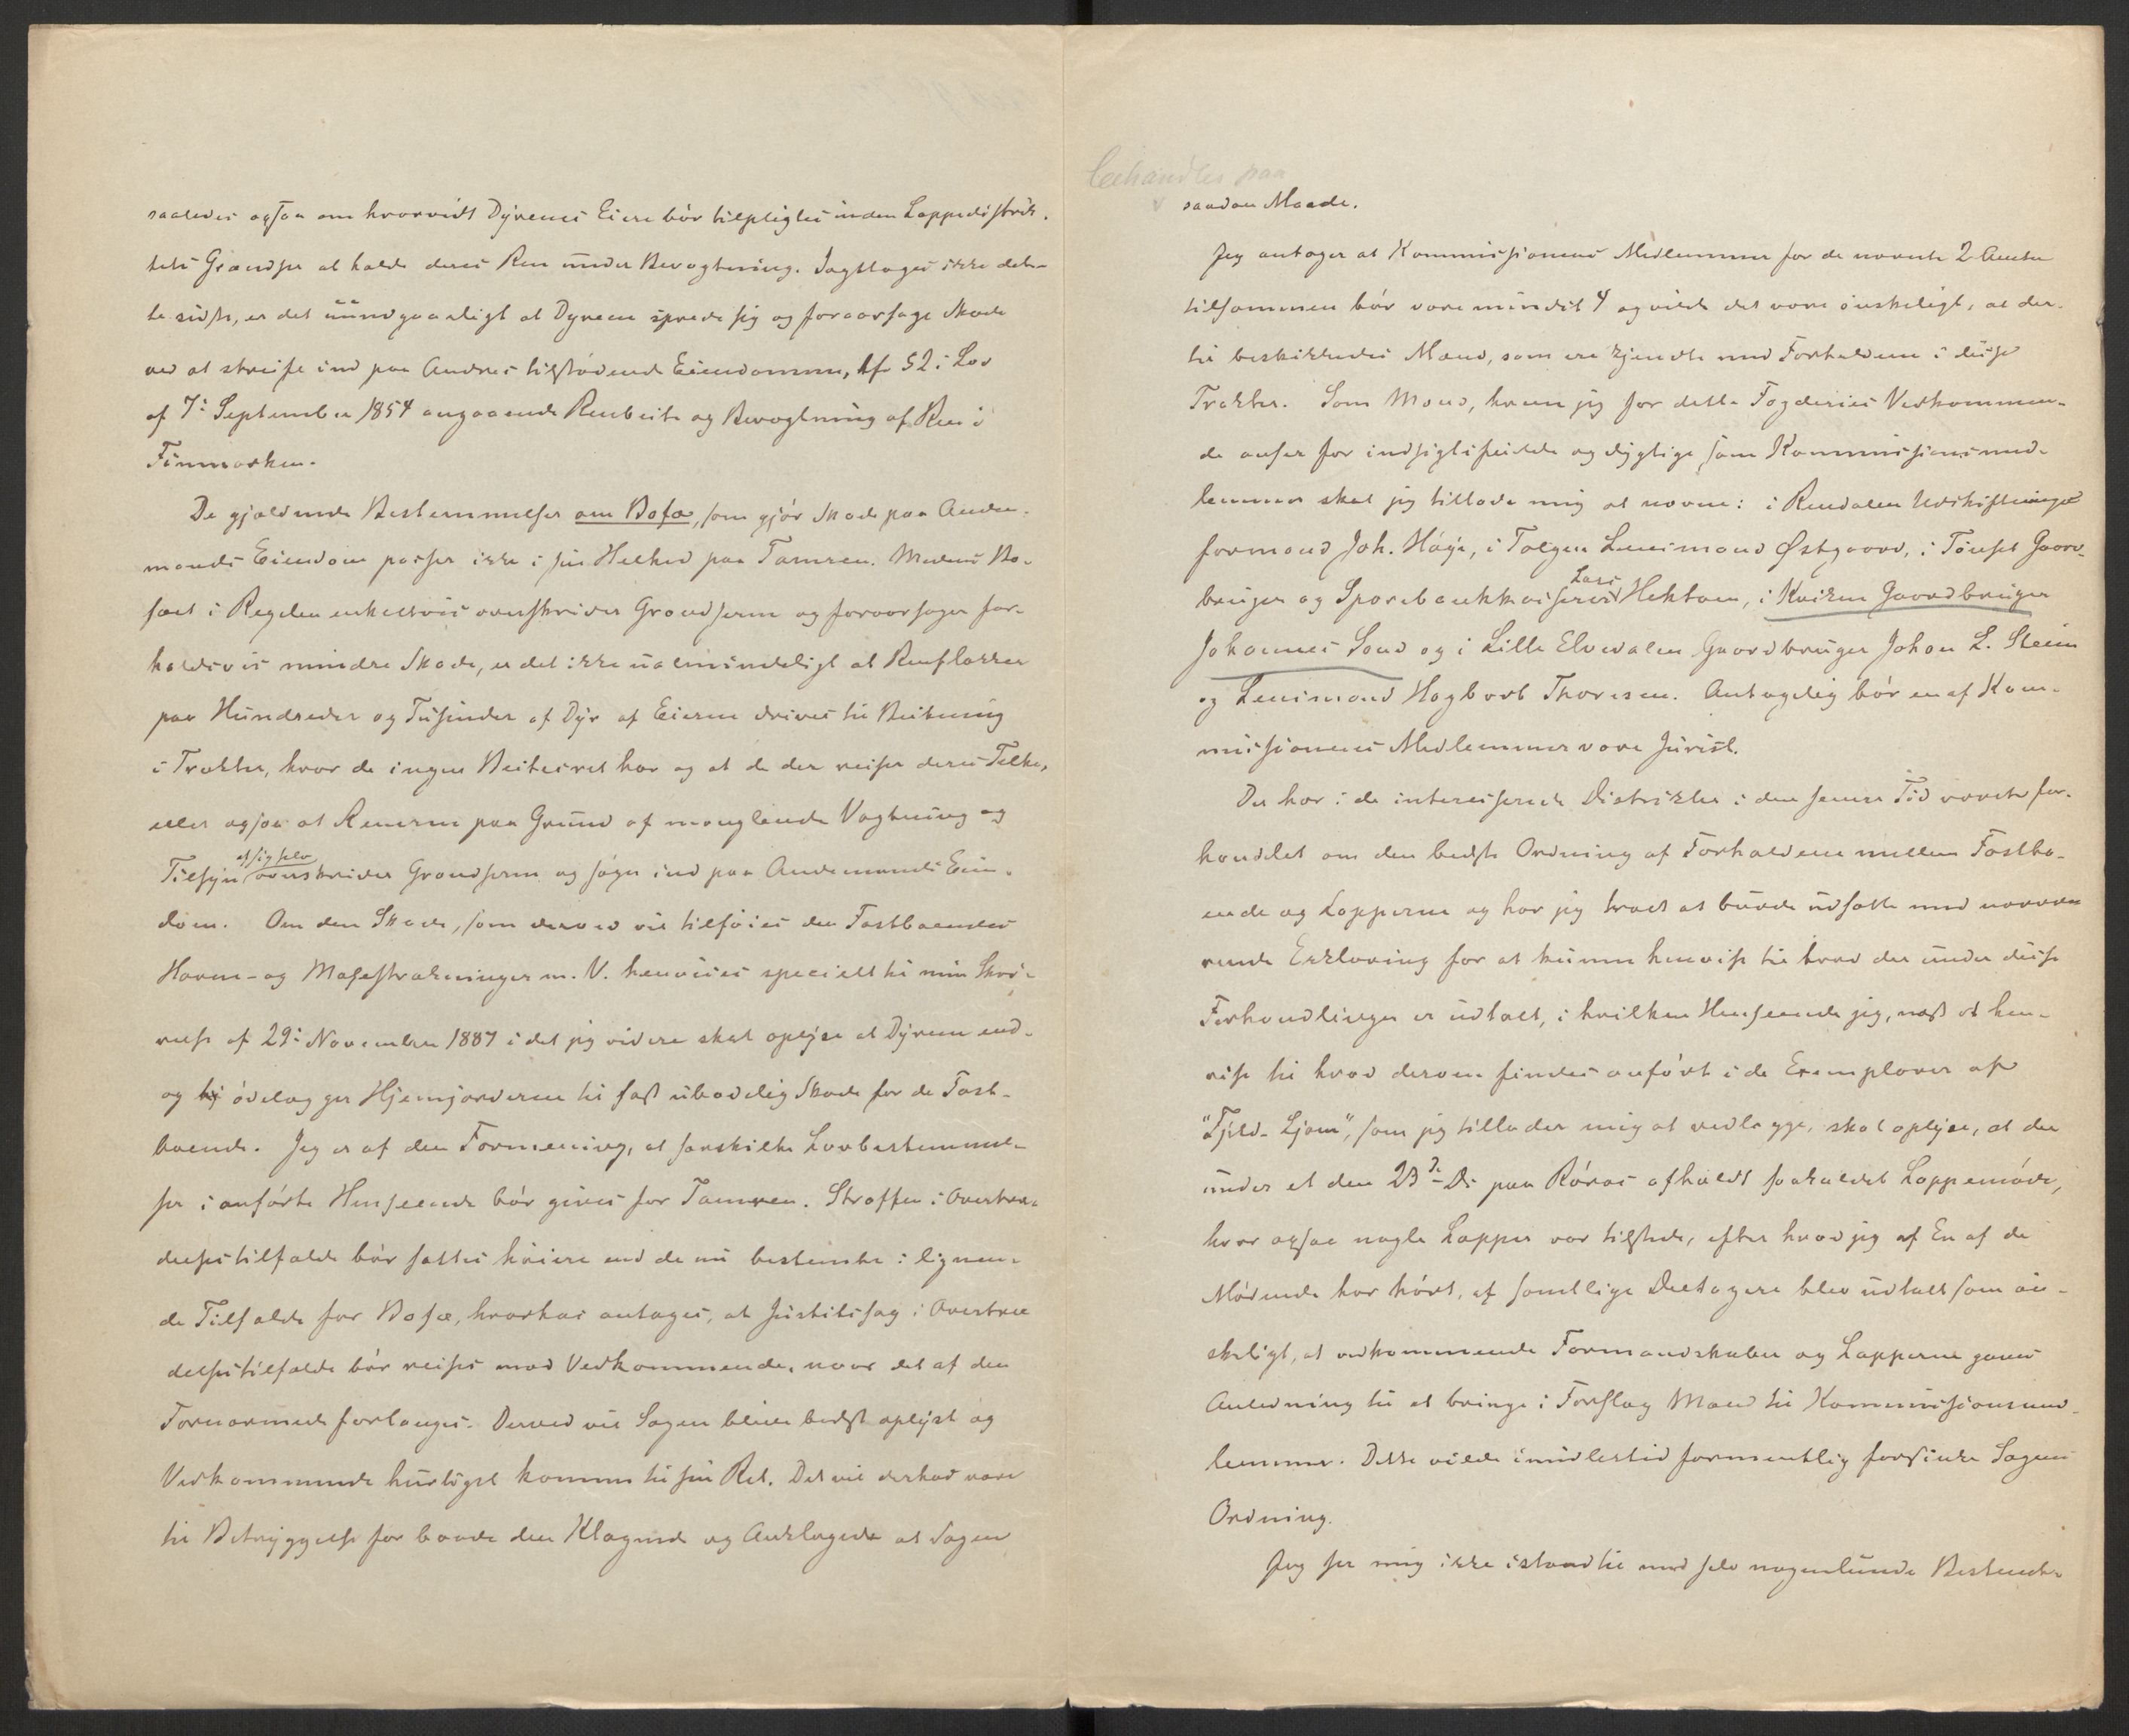 saaledes ogsaa om hvorvidt Dyrenes Eiere bör tilpligtes inden Lappedistrik-
tets Grændser at holde deres Ren under Bevogtning. Iagttages ikke det-
te sidste, er det uundgaaeligt at Dyrene sprede sig og foraarsage Skade
ved at streife ind paa Andres tilstödende Eiendomme, cfr § 2 i Lov
af 7de September 1854 angaaende Renbeite og Bevogtning af Ren i
Finmarken.
De gjældende Bestemmelser om Bofæ, som gjör Skade paa Anden-
mands Eiendom passer ikke i sin Helhed paa Tamren. Medens Bo-
fæet i Regelen enkeltvis overskrider Grændserne og foraarsager for-
holdsvis mindre Skade, er det ikke ualmindeligt at Renflokker
paa Hundreder og Tusinder af Dyr af Eierne drives til Beitning
i Trakter, hvor de ingen Beitesret har og at de der reiser deres Telte,
eller ogsaa at Renerne paa Grund af manglende Vogtning og
Tilsyn af sig selv overskrider Grændserne og söger ind paa Andenmands Eien-
dom. Om den Skade, som derved vil tilföies den Fastboendes
Havne- og Moseskrækninger m. V. henvises specielt til min Skri-
velse af 29de November 1887 idet jeg videre skal oplyse at Dyrene end-
og ödelægger Hjemjorderne til fast ubodelig Skade for de Fast-
boende. Jeg er af den Formening, at særskilte Lovbestemmel-
ser i anförte Henseende bör gives for Tamren. Straffen i Overtræ-
delsestilfælde bör sættes höiere end de nu bestemte i lignen-
de Tilfælde for Bofæ, hvorhos antages, at Justitssag i Overtræ
delsestilfælde bör reises mod Vedkommende, naar det af den
Fornærmede forlanges. Derved vil Sagen blive bedst oplyst og
Vedkommende hurtigst komme til sin Ret. Det vil derhos være
til Betryggelse for baade den Klagende og Anklagede at Sagen
behandles paa
saadan Maade.
Jeg antager at Kommissionens Medlemmer for de nævnte 2 Amter
tilsammen bör være mindst 4 og vilde det være önskeligt, at der-
til beskikkedes Mænd, som ere kjendte med Forholdene i disse
Trakter. Som Mænd, hvem jeg for dette Fogderies Vedkommen-
de anser for indsigtsfulde og dygtige som Kommissionsmed-
lemmer skal jeg tillade mig at nævne: i Rendalen Udskiftnings
formand Joh. Höye, i Tolgen Lensmand Østgaard, i Tönset Gaard-
bruger og Sparebankkasserer Lars Hektoen, i Kvikne Gaardbruger
Johannes Sand og i Lille Elvedalen Gaardbruger Johan L. Steien
og Lensmand Hagbart Thoresen. Antagelig bör en af Kom-
missionens Medlemmer være Jurist.
Der har i de interesserede Distrikter i den senere Tid været for-
handlet om den bedste Ordning af Forholdene mellem Fastbo-
ende og Lapperne og har jeg troet at burde udsætte med nærvæ
rende Erklæring for at kunne henvise til hvad der under disse
Forhandlinger er udtalt, i hvilken Henseende jeg, næst at hen-
vise til hvad derom findes anfört i de Exemplarer af
"Fjeld-Ljom", som jeg tillader mig at vedlægge, skal oplyse, at der
under et den 23de Ds paa Röros afholdt saakaldet Lappemöde,
hvor ogsaa nogle Lapper var tilstede, efter hvad jeg af En af de
Mödende har hört, af samtlige Deltagere blev udtalt som ön-
skeligt, at vedkommende Formandskaber og Lapperne gaves
Anledning til at bringe i Forslag Mænd til Kommissionsmed-
lemmer. Dette vilde imidlertid formentlig forsinke Sagens
Ordning.
Jeg ser mig ikke istand til med selv nogenlunde Bestemt-